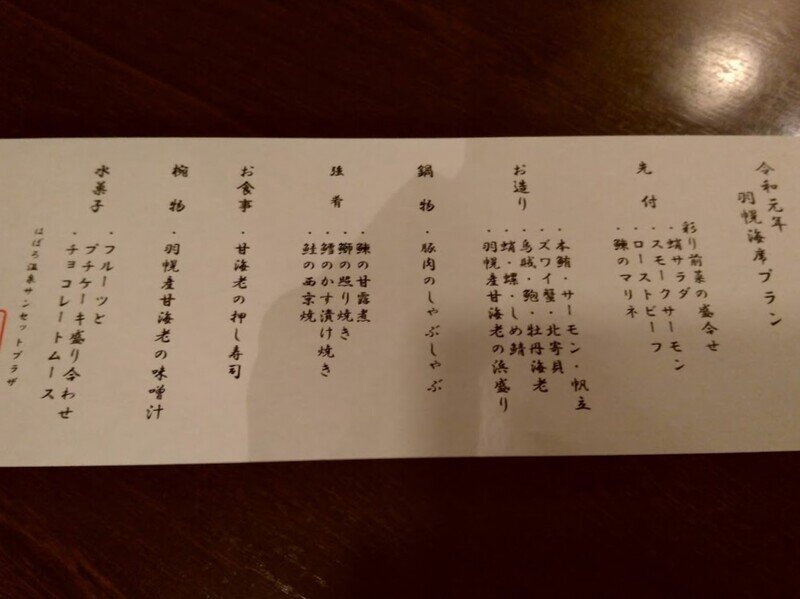 令和元年
羽幌海序プラン
先付
彩り前菜の盛合せ
・蛸サラダ
・スモークサーモン
・ローストビーフ
・鰊のマリネ
お造り
・本鮪・サーモン・帆立
・ズワイ蟹・北寄貝
・烏賊・鮑・牡丹海老
・蛸・螺・しめ鯖
・羽幌産甘海老の浜盛り
鍋物
・豚肉のしゃぶしゃぶ
強肴
・鰊の甘露煮
・鰤の照り焼き
・鱈のかす漬け焼き
・鮭の西京焼
お食事
・甘海老の押し寿司
椀物
・羽幌産甘海老の味噌汁
水菓子
・フルーツと
プチケーキ盛り合わせ
・チョコレートムース
はぼろ温泉サンセットプラザ